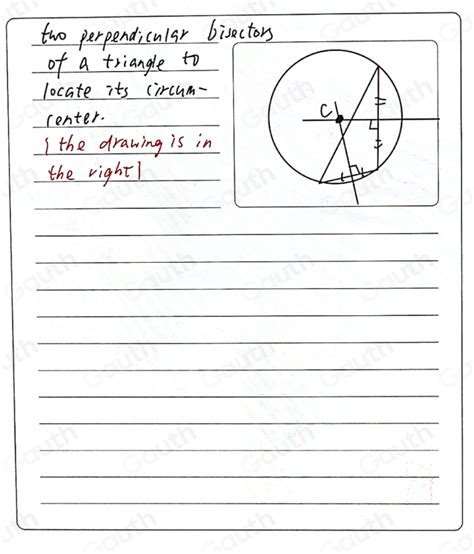 two perpendicular bisectors
of a triangle to
locate its circum-
center.
[the drawing is in
the right]
C
Gauth